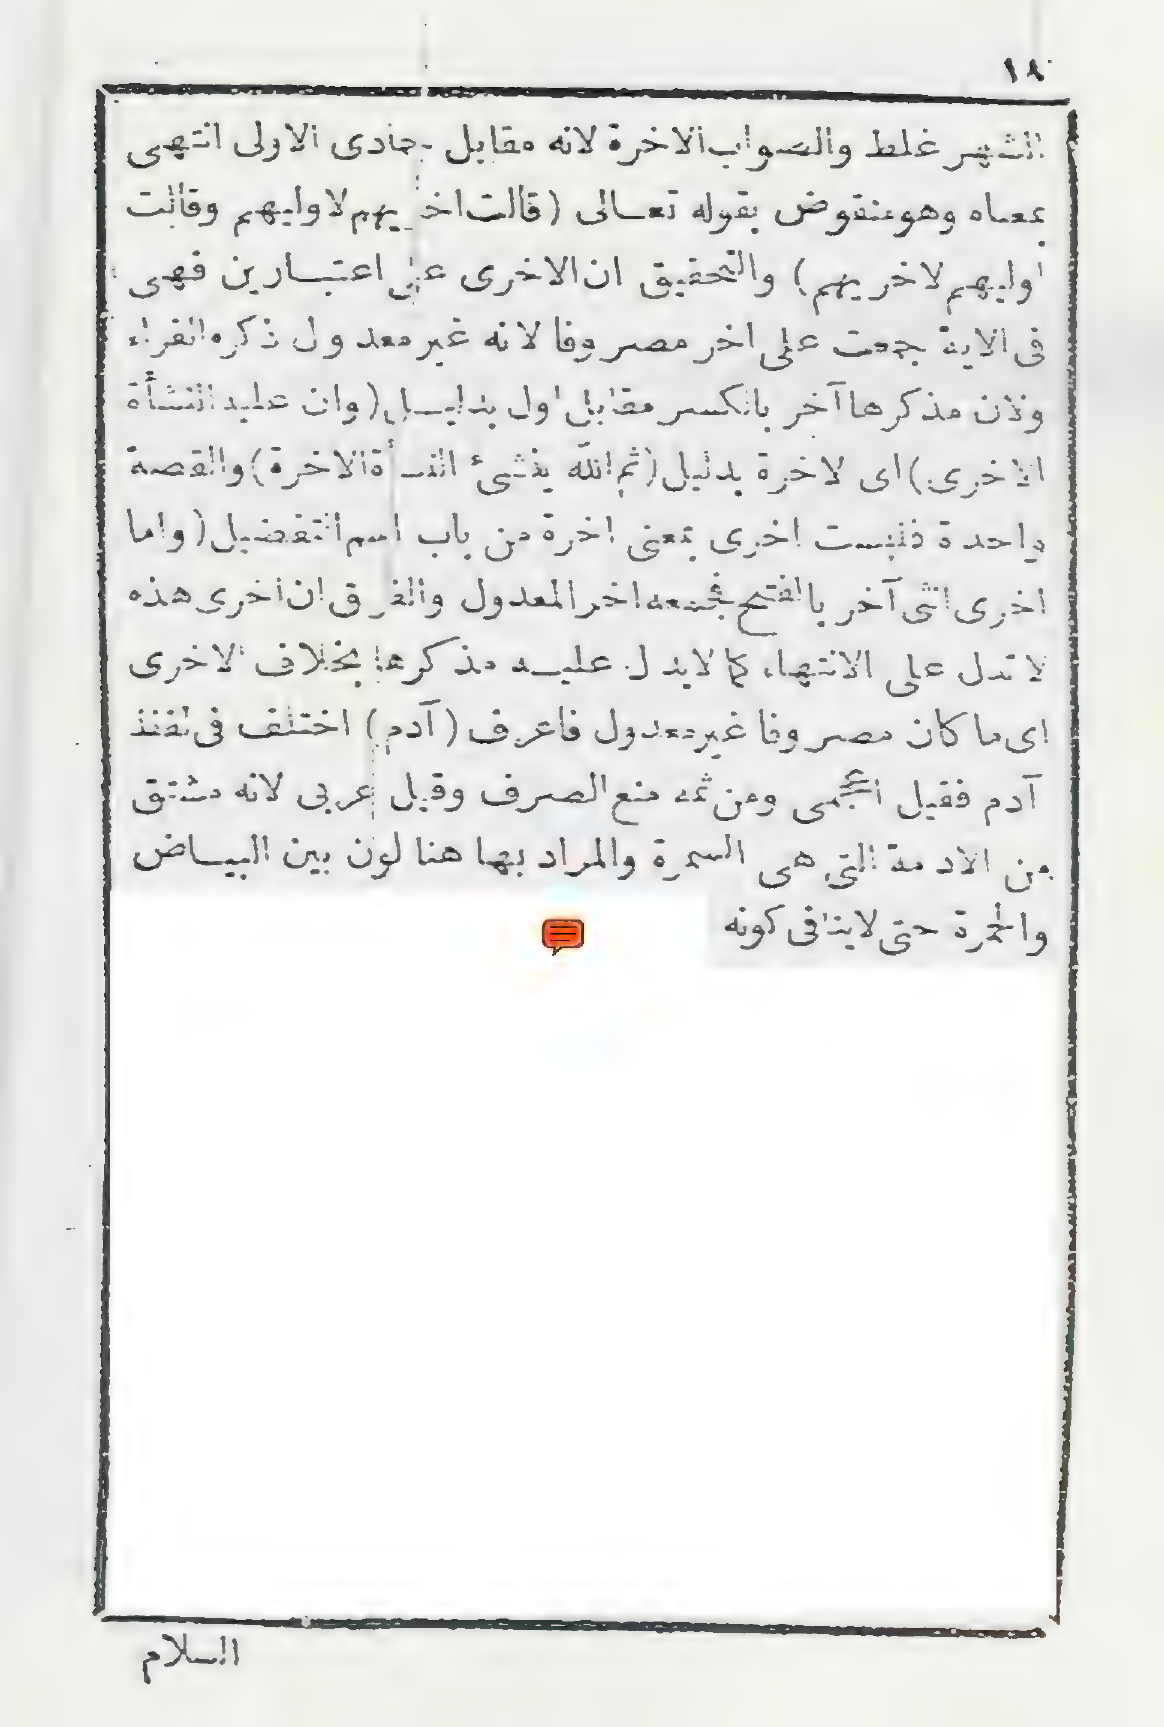 ١٨
الشهر غلط والصواب الاخرة لانه مقابل جادى الاولى انتهى
بمعناه وهو منقوض بقوله تعالى (قالت اخريهم لاوليهم وقالت
اوليهم لاخريهم) والتحقيق ان الاخرى على اعتبارين فهى
فى الاية جمعت على اخر مصروفا لانه غير معدول ذكره الفراء
ولان مذكرها آخر بالكسر مقابل اول بدليل (وان عليه النشأة
الاخرى) اى الاخرة بدليل (ثم الله ينشئ النشأة الاخرة) والقصة
واحدة فليست اخرى بمعنى اخرة من باب اسم التفضيل (واما
اخرى انثى آخر بالفتح فجمعه اخر المعدول والفرق ان اخرى هذه
لا تدل على الانتهاء كما لايدل عليه مذكرها بخلاف الاخرى
اى ما كان مصروفا غير معدول فاعرف (آدم) اختلف فى لفظ
آدم فقيل اعجمى ومن ثمه منع الصرف وقيل عربى لانه مشتق
من الادمة التى هى السمرة والمراد بها هنا لون بين البياض
والحمرة حتى لاينافى كونه
السلام